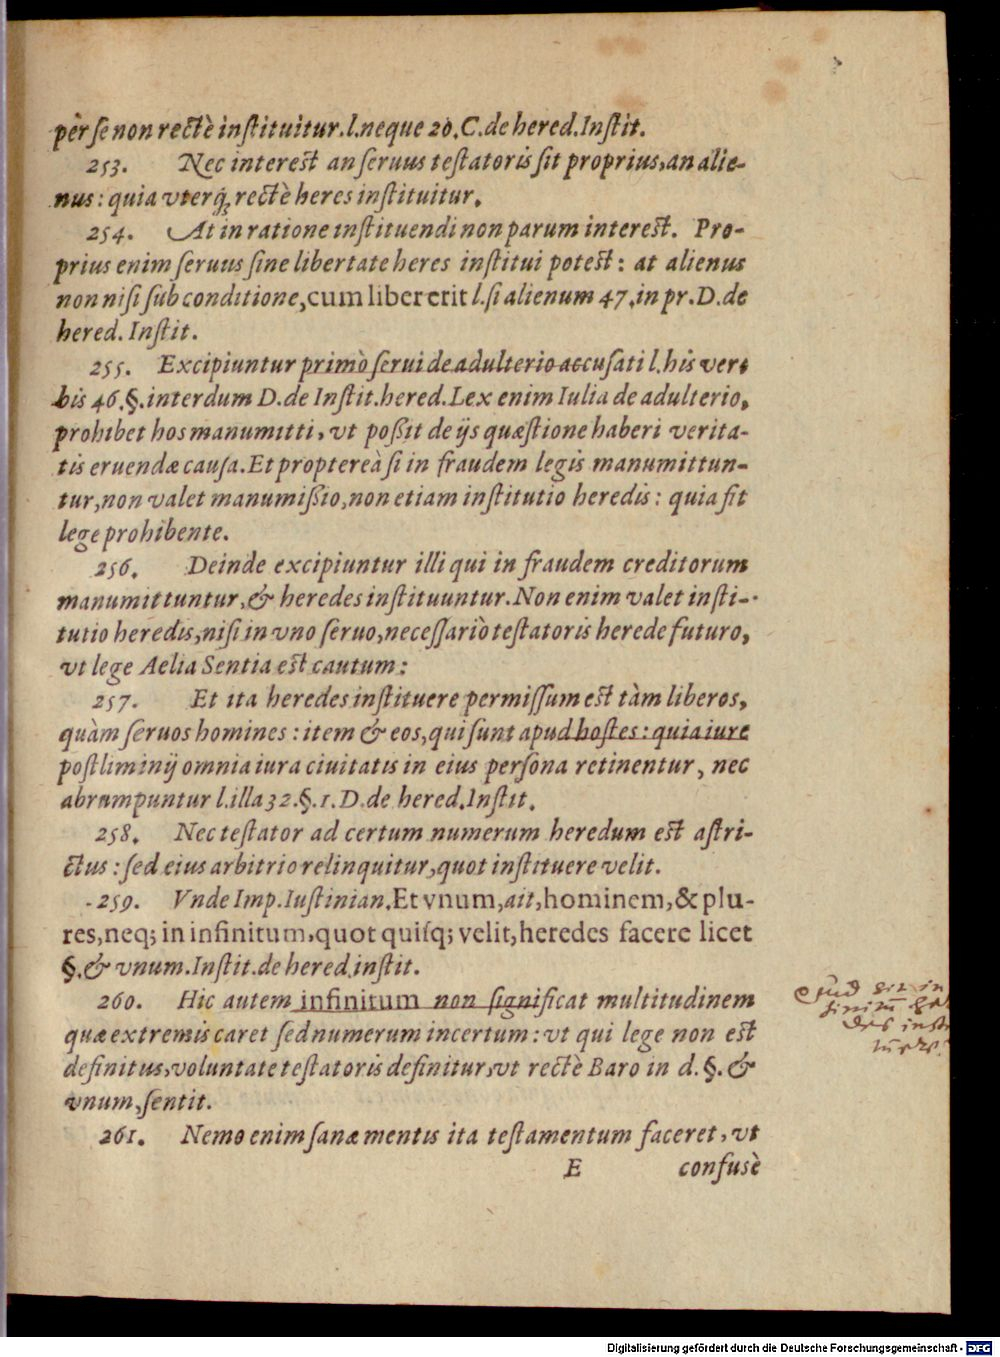 pèr se non rectè instituitur.l.neque 20.C.de hered.Instit.
253. Nec interest an seruus testatoris sit proprius,an alie-
nus: quia vterq; rectè heres instituitur.
254. At in ratione instituendi non parum interest. Pro-
prius enim seruus sine libertate heres institui potest: at alienus
non nisi sub conditione,cum liber erit l.si alienum 47.in pr.D.de
hered. Instit.
255. Excipiuntur primò serui de adulterio accusati l.his ver-
bis 46.§.interdum D.de Instit.hered.Lex enim Iulia de adulterio,
prohibet hos manumitti, vt poßit de ijs quæstione haberi verita-
tis eruendæ causa.Et propterea si in fraudem legis manumittun-
tur,non valet manumißio,non etiam institutio heredis: quia fit
lege prohibente.
256. Deinde excipiuntur illi qui in fraudem creditorum
manumittuntur,& heredes instituuntur.Non enim valet insti-
tutio heredis,nisi in vno seruo,necessariò testatoris herede futuro,
vt lege Aelia Sentia est cautum:
257. Et ita heredes instituere permissum est tàm liberos,
quàm seruos homines: item & eos,qui sunt apud hostes: quia iure
postliminij omnia iura ciuitatis in eius persona retinentur, nec
abrumpuntur l.illa 32.§.1.D.de hered.Instit.
258. Nec testator ad certum numerum heredum est astri-
ctus: sed eius arbitrio relinquitur,quot instituere velit.
259. Vnde Imp.Iustinian.Et vnum,ait,hominem,& plu-
res,neq; in infinitum,quot quisq; velit,heredes facere licet
§.& vnum.Instit.de hered.instit.
260. Hic autem infinitum non significat multitudinem
quæ extremis caret sed numerum incertum: vt qui lege non est
definitus,voluntate testatoris definitur,vt rectè Baro in d.§.&
vnum,sentit.
261. Nemo enim sanæ mentis ita testamentum faceret, vt
E confusè
Digitalisierung gefördert durch die Deutsche Forschungsgemeinschaft - DFG